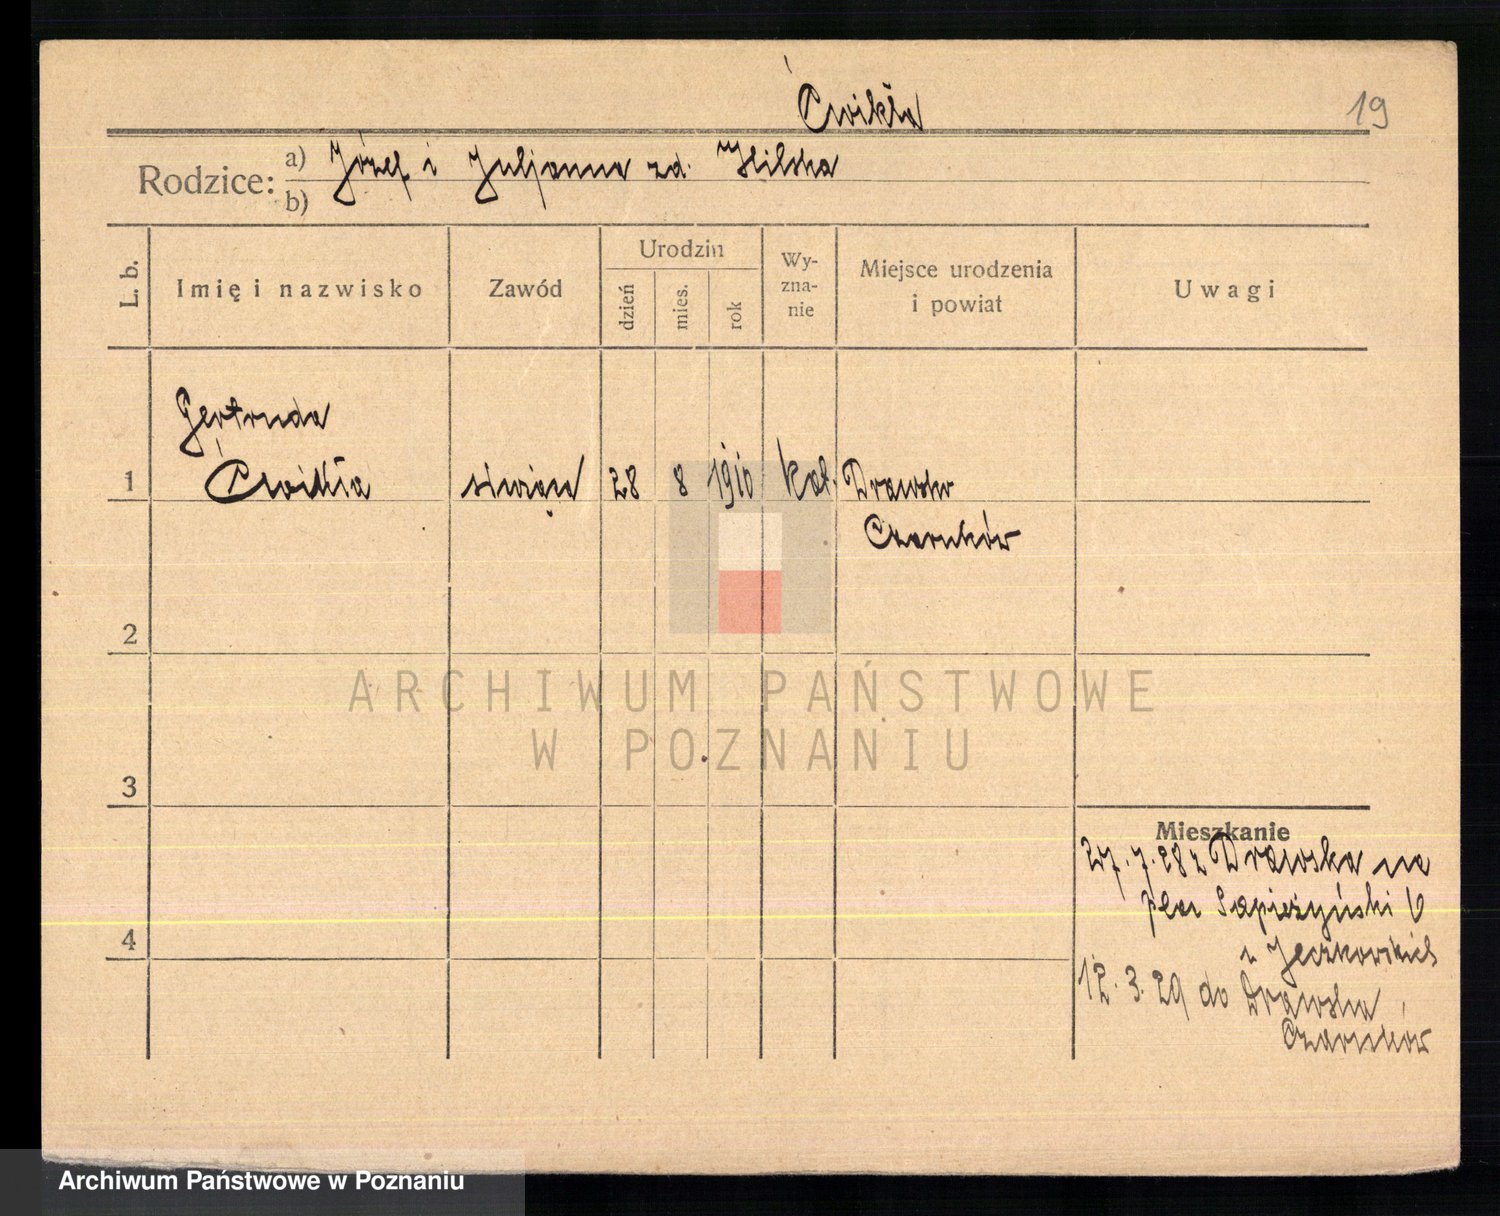 Ćwikła
19
Rodzice: a) Józef i Juljanna zd.
b)
L. b.
Imię i nazwisko
Zawód
Urodzin
dzień
mies.
rok
Wy-
zna-
nie
Miejsce urodzenia
i powiat
Uwagi
Gertruda
1 Ćwikła 28 8 1910 kat. Drawsko
Czarnków
2
ARCHIWUM PAŃSTWOWE
W POZNANIU
3
Mieszkanie
27.7.28 z Drawska na
plac Sapieżyński
4
12.3.29 do Drawska
Czarnków
Archiwum Państwowe w Poznaniu